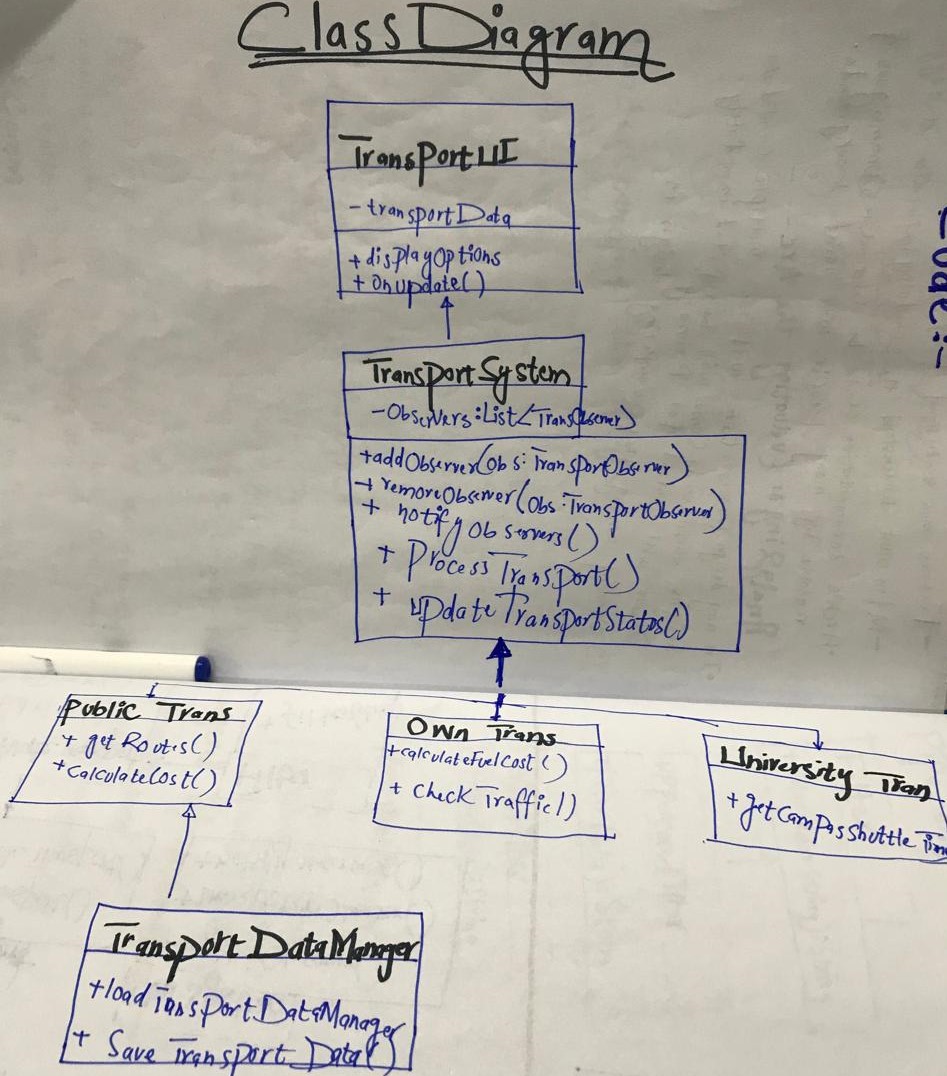 Class Diagram
TransPort UI
- transport Data
+ displayOptions
+ onupdate()
Transport System
- Observers: List<TransObserver)
+addObserver(obs: TransportObserver)
+ removeObserver(obs: TransportObserver)
+ notifyObservers()
+ Process Transport()
+ updateTransportStatus()
Public Trans
+ get Routes()
+calculateCost()
Own Trans
+calculateFuelCost()
+ check Traffic()
University Tran
+ getCampasShuttle Tim
Transport Data Manager
+load TansPort DataManager
+ Save Transport Data()